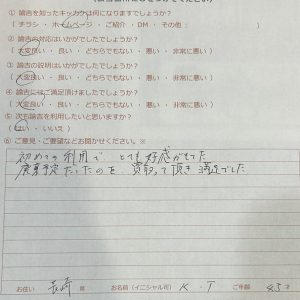 ① 諭吉を知ったキッカケは何になりますでしょうか？
（ チラシ ・ ホームページ ・ ご紹介 ・ DM ・ その他：　　　）
② 諭吉の対応はいかがでしたでしょうか？
（ 大変良い ・ 良い ・ どちらでもない ・ 悪い ・ 非常に悪い ）
③ 諭吉の説明はいかがでしたでしょうか？
（ 大変良い ・ 良い ・ どちらでもない ・ 悪い ・ 非常に悪い ）
④ 諭吉にはご満足頂けましたでしょうか？
（ 大変良い ・ 良い ・ どちらでもない ・ 悪い ・ 非常に悪い ）
⑤ 次も諭吉を利用したいと思いますか？
（ はい ・ いいえ ）
⑥ ご意見・ご要望などお聞かせください。※
初めての利用で とても好感がもてた
廃車予定だったのを 買取って頂き 満足でした
お住い 長崎 県 お名前（イニシャル可） K・T ご年齢 45 才